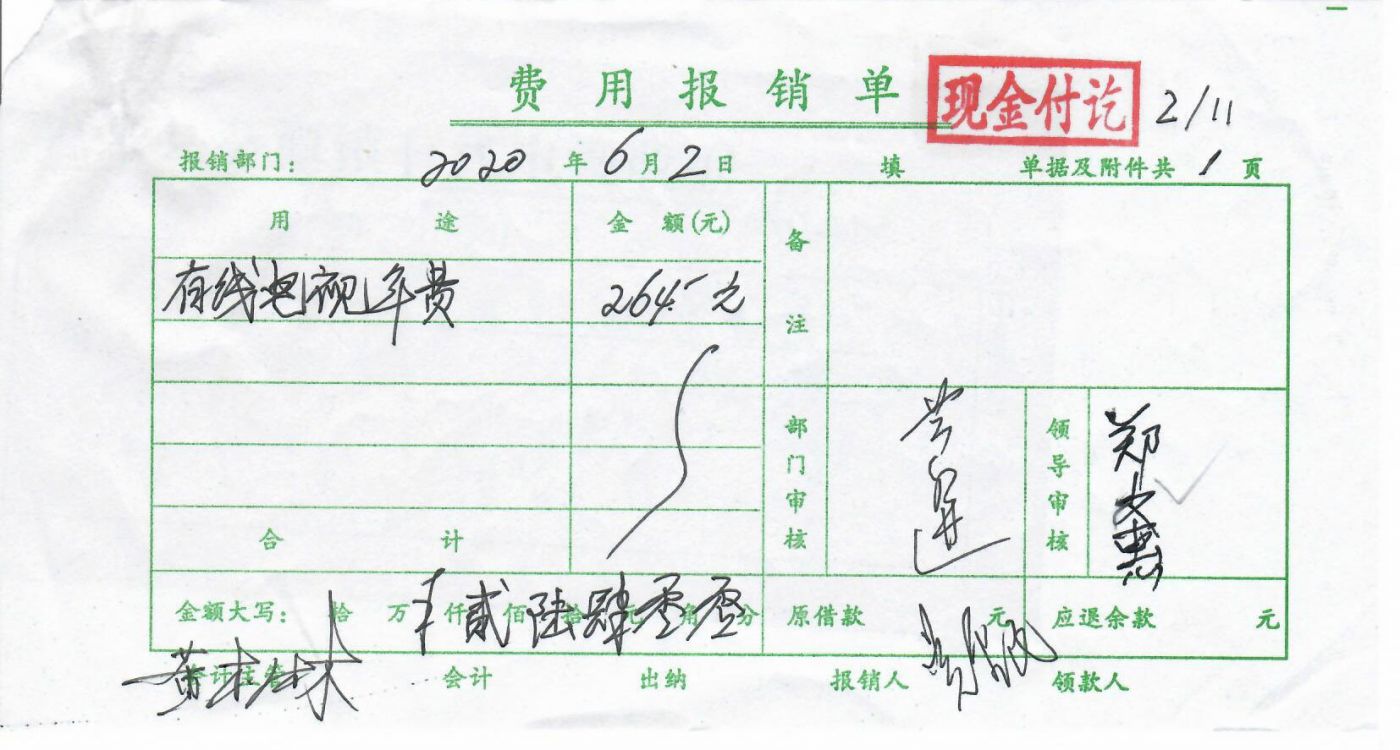 费用报销单 现金付讫 2/11
报销部门： 2020 年 6 月 2 日 填 单据及附件共 1 页
用途 金额(元) 备注
有线电视年费 264.- 元
部门审核 领导审核 郑文惠
合计
金额大写： 拾 万 仟 佰 拾 元 角 分 贰陆肆零零 原借款 元 应退余款 元
会计主管 会计 出纳 报销人 领款人